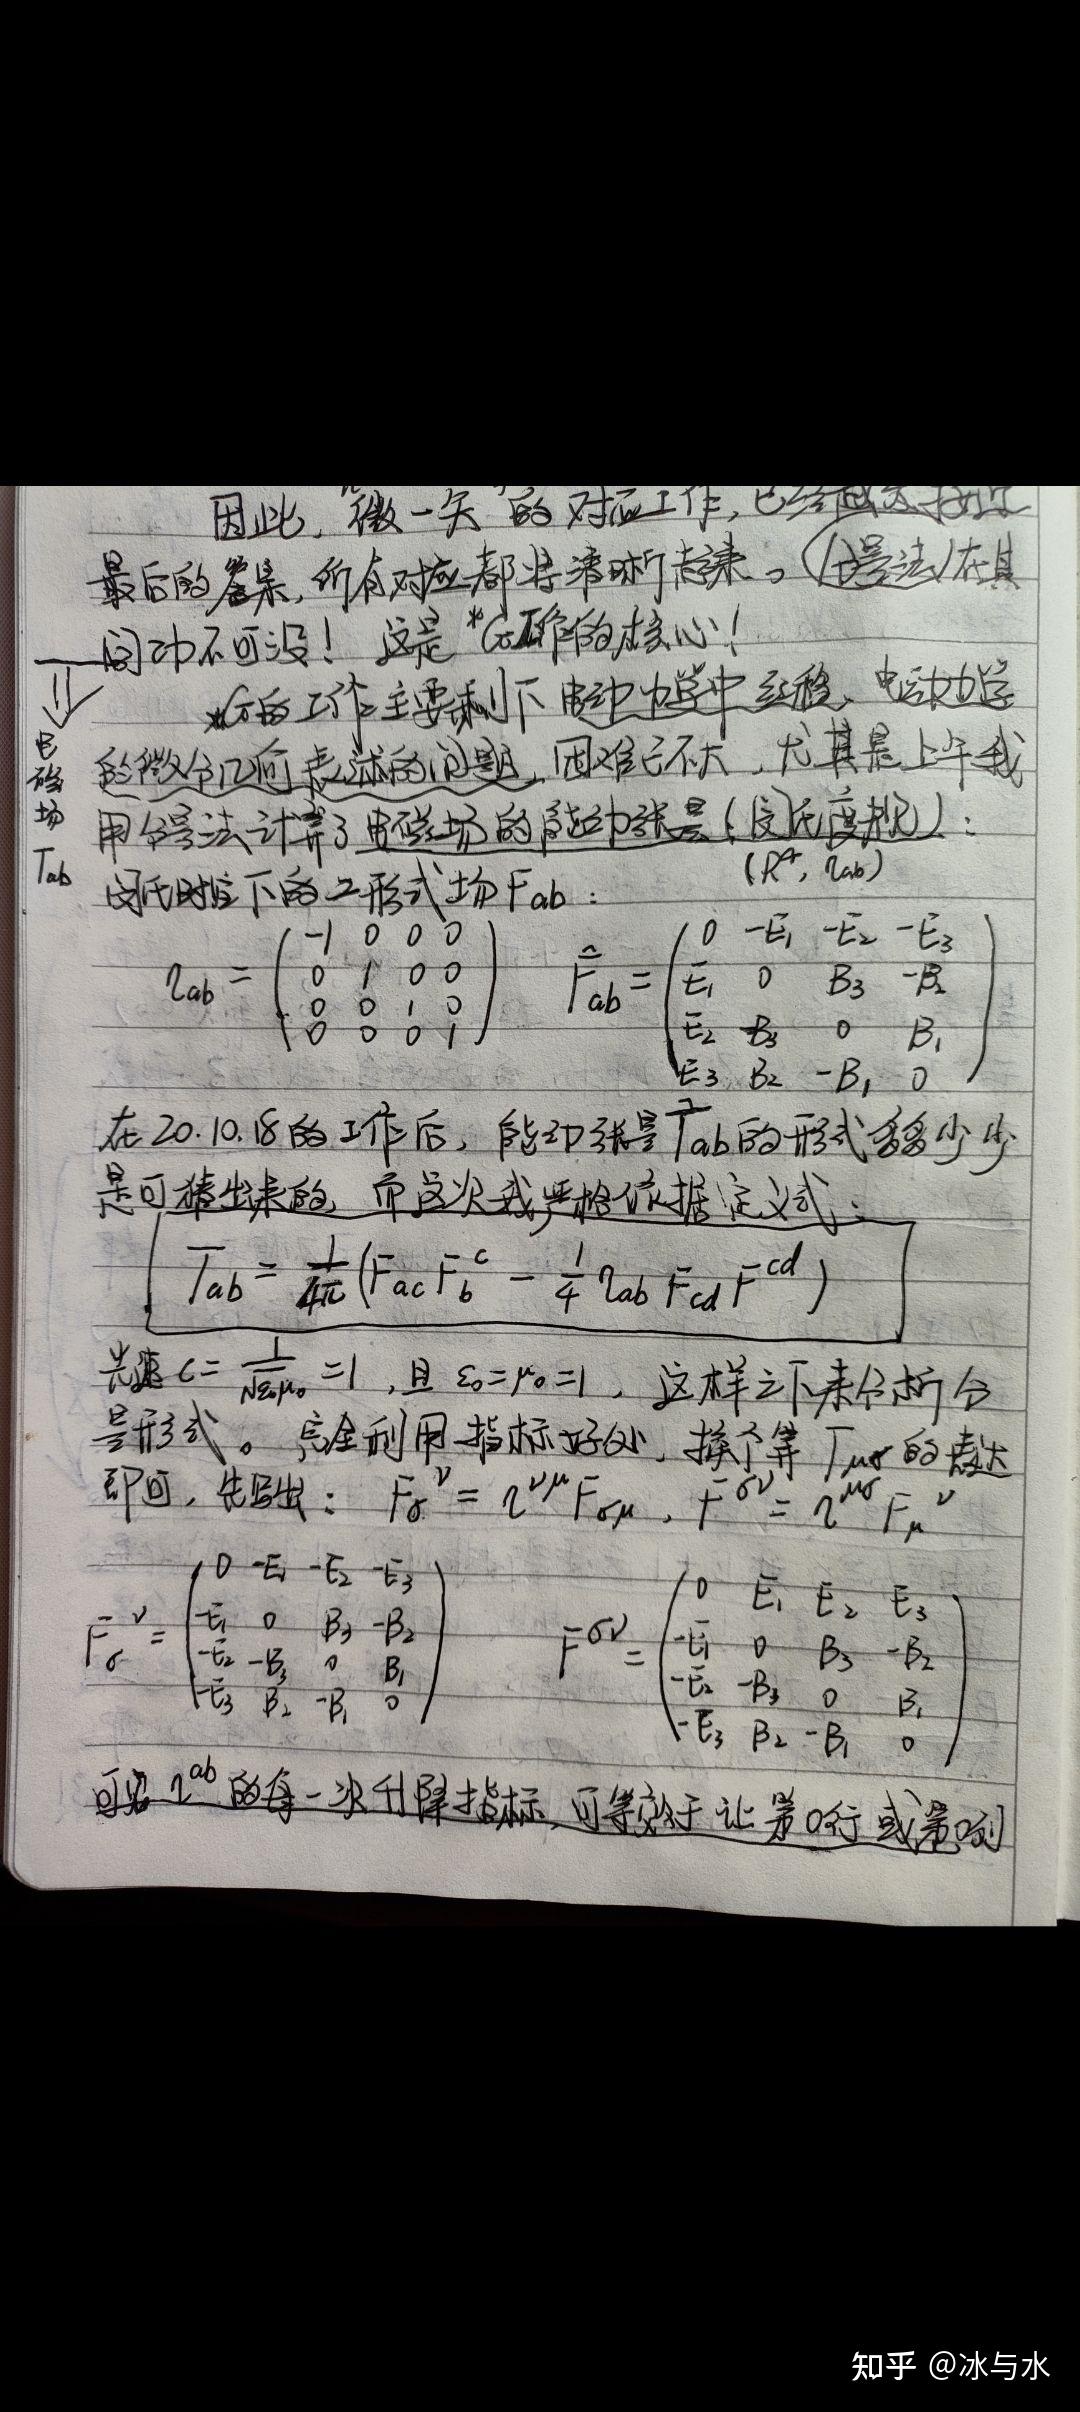 因此，"微一矢"的对应工作，已经越来接近
最后的答案，所有对应都将清晰起来。(分量法)在其
间功不可没！这是*G工作的核心！
*G的工作主要剩下电动力学中 电动力学
的微分几何表述的问题，困难已不大，尤其是上午我
用分量法计算了电磁场的能动张量(闵氏度规)：
(R⁴, ηab)
⇓
电磁场 Tab
闵氏时空下的二形式场Fab：
ηab = ( -1 0 0 0 / 0 1 0 0 / 0 0 1 0 / 0 0 0 1 ) Fab = ( 0 -E₁ -E₂ -E₃ / E₁ 0 B₃ -B₂ / E₂ -B₃ 0 B₁ / E₃ B₂ -B₁ 0 )
在20.10.18的工作后，能动张量Tab的形式多多少少
是可猜出来的，而这次我严格依据定义式：
Tab = 1/4π (Fac Fb^c - 1/4 ηab Fcd F^cd)
光速 c = 1/√ε₀μ₀ = 1，且 ε₀=μ₀=1，这样之下来分析分
量形式。完全利用指标好处，换个等Tμσ的表达
即可，先写出：Fσ^ν = η^νμ Fσμ，F^σν = η^μσ Fμ^ν
Fσ^ν = ( 0 -E₁ -E₂ -E₃ / -E₁ 0 B₃ -B₂ / -E₂ -B₃ 0 B₁ / -E₃ B₂ -B₁ 0 ) F^σν = ( 0 E₁ E₂ E₃ / -E₁ 0 B₃ -B₂ / -E₂ -B₃ 0 B₁ / -E₃ B₂ -B₁ 0 )
可见η^ab的每一次升降指标，可等效于让第0行或第0列
知乎 @冰与水